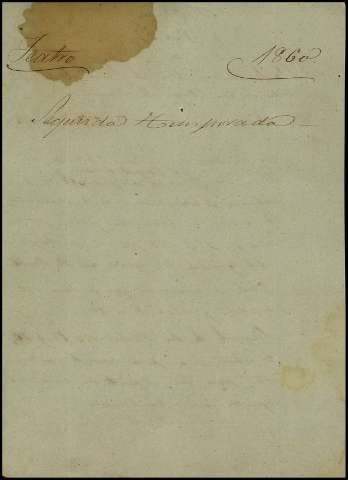 Teatro 1860
Segunda temporada